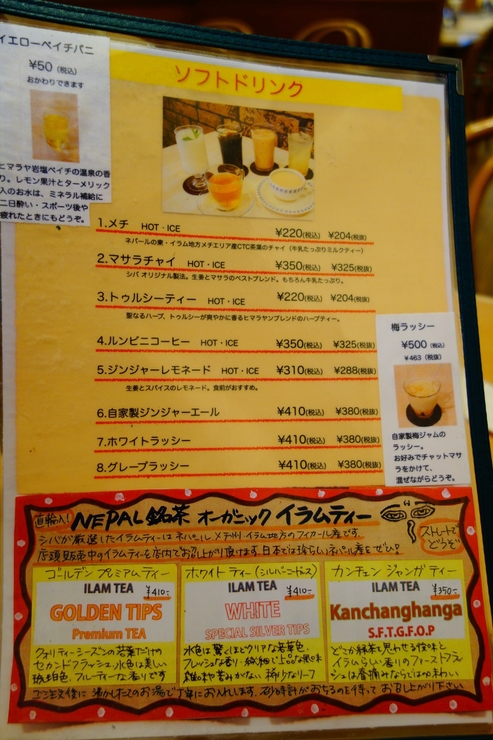 イエローペイチパニ
¥50(税込)
おかわりできます
ヒマラヤ岩塩ペイチの温泉の香
り。レモン果汁とターメリック
入のお水は、ミネラル補給に
二日酔い・スポーツ後や
疲れたときにもどうぞ。
ソフトドリンク
1.メチ HOT・ICE ¥220(税込) ¥204(税抜)
ネパールの東・イラム地方メチエリア産CTC茶葉のチャイ（牛乳たっぷりミルクティー）
2.マサラチャイ HOT・ICE ¥350(税込) ¥325(税抜)
シバ オリジナル製法。生姜とマサラのベストブレンド。もちろん牛乳たっぷり。
3.トゥルシーティー HOT・ICE ¥220(税込) ¥204(税抜)
聖なるハーブ、トゥルシーが爽やかに香るヒマラヤンブレンドのハーブティー。
4.ルンビニコーヒー HOT・ICE ¥350(税込) ¥325(税抜)
5.ジンジャーレモネード HOT・ICE ¥310(税込) ¥288(税抜)
生姜とスパイスのレモネード。食前がおすすめ。
6.自家製ジンジャーエール ¥410(税込) ¥380(税抜)
7.ホワイトラッシー ¥410(税込) ¥380(税抜)
8.グレープラッシー ¥410(税込) ¥380(税抜)
梅ラッシー
¥500(税込)
¥463(税抜)
自家製梅ジャムの
ラッシー。
お好みでチャットマサ
ラをかけて、
混ぜながらどうぞ。
直輸入! NEPAL銘茶 オーガニック イラムティー
シバが厳選したイラムティーはネパール メチ州 イラム地方のフィカール産です。
店頭販売中のイラムティーを店内でお召し上がり頂けます。日本では珍らしいネパール産をぜひ!
ストレートで
どうぞ
ゴールデン プレミアムティー
ILAM TEA ¥410-
GOLDEN TIPS
Premium TEA
クォリティーシーズンの若葉だけの
セカンドフラッシュ。水色は美しい
琥珀色。フルーティーな香りです
ホワイト ティー(シルバーニードルス)
ILAM TEA ¥410-
WHITE
SPECIAL SILVER TIPS
水色は驚くほどクリアな若葉色。
カンチェン ジャンガ ティー
ILAM TEA ¥350-
Kanchanghanga
S.F.T.G.F.O.P
どこか緑茶を思わせる後味と
イラムらしい香りのファーストフラッ
シュは春摘みならではの味わい
ご注文後に沸かしたてのお湯で丁寧にお入れします。砂時計がおちるのを待ってお召し上がり下さい